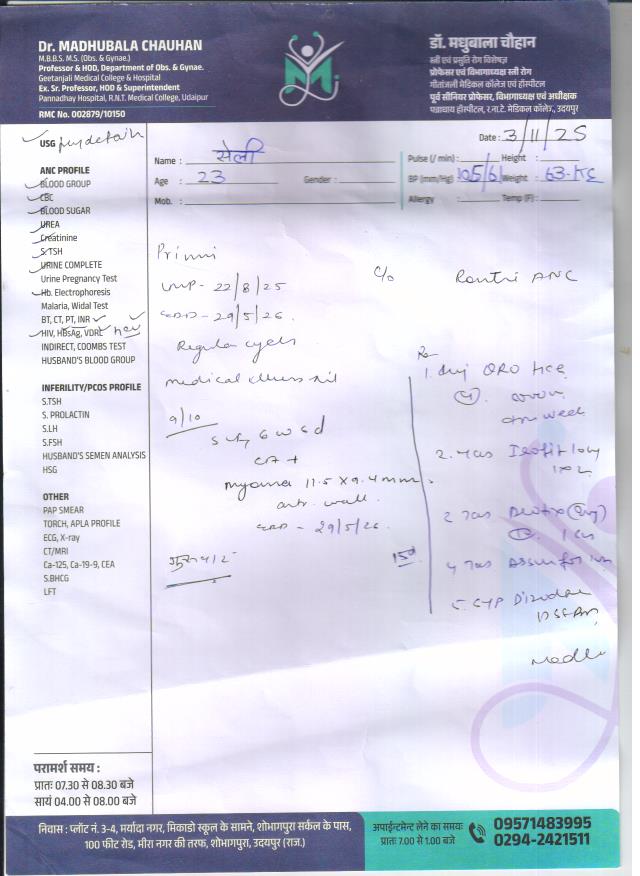 Dr. MADHUBALA CHAUHAN
M.B.B.S. M.S. (Obs. & Gynae.)
Professor & HOD, Department of Obs. & Gynae.
Geetanjali Medical College & Hospital
Ex. Sr. Professor, HOD & Superintendent
Pannadhay Hospital, R.N.T. Medical College, Udaipur
RMC No. 002879/10150
डॉ. मधुबाला चौहान
स्त्री एवं प्रसुति रोग विशेषज्ञ
प्रोफेसर एवं विभागाध्यक्ष स्त्री रोग
गीतांजली मेडिकल कॉलेज एवं हॉस्पीटल
पूर्व सीनियर प्रोफेसर, विभागाध्यक्ष एवं अधीक्षक
पन्नाधाय हॉस्पीटल, र.ना.टे. मेडिकल कॉलेज, उदयपुर
Date : 3/11/25
Name :
Age : 23 Gender :
Mob. :
Pulse (/ min) : Height :
BP (mm/Hg) 105/61 Weight : 63 KG
Allergy Temp (F) :
USG
ANC PROFILE
BLOOD GROUP
CBC
BLOOD SUGAR
UREA
Creatinine
S.TSH
URINE COMPLETE
Urine Pregnancy Test
Hb. Electrophoresis
Malaria, Widal Test
BT, CT, PT, INR
HIV, HBsAg, VDRL HCV
INDIRECT, COOMBS TEST
HUSBAND'S BLOOD GROUP
INFERILITY/PCOS PROFILE
S.TSH
S. PROLACTIN
S.LH
S.FSH
HUSBAND'S SEMEN ANALYSIS
HSG
OTHER
PAP SMEAR
TORCH, APLA PROFILE
ECG, X-ray
CT/MRI
Ca-125, Ca-19-9, CEA
S.BHCG
LFT
Primi
LMP - 22/8/25
EDD - 29/5/26.
Regular cycles
medical illness nil
9/10
6 w 5 d
CA +
myoma 11.5 X 9.4 mm.
ant. wall.
EDD - 29/5/26
C/o Routine ANC
Rx
1. Inj
week
2. Tas
4 Tas
5. Syp
15d
परामर्श समय :
प्रातः 07.30 से 08.30 बजे
सायं 04.00 से 08.00 बजे
निवास : प्लॉट नं. 3-4, मर्यादा नगर, मिकाडो स्कूल के सामने, शोभागपुरा सर्कल के पास,
100 फीट रोड, मीरा नगर की तरफ, शोभागपुरा, उदयपुर (राज.)
अपाईन्टमेन्ट लेने का समयः
प्रातः 7.00 से 1.00 बजे
09571483995
0294-2421511